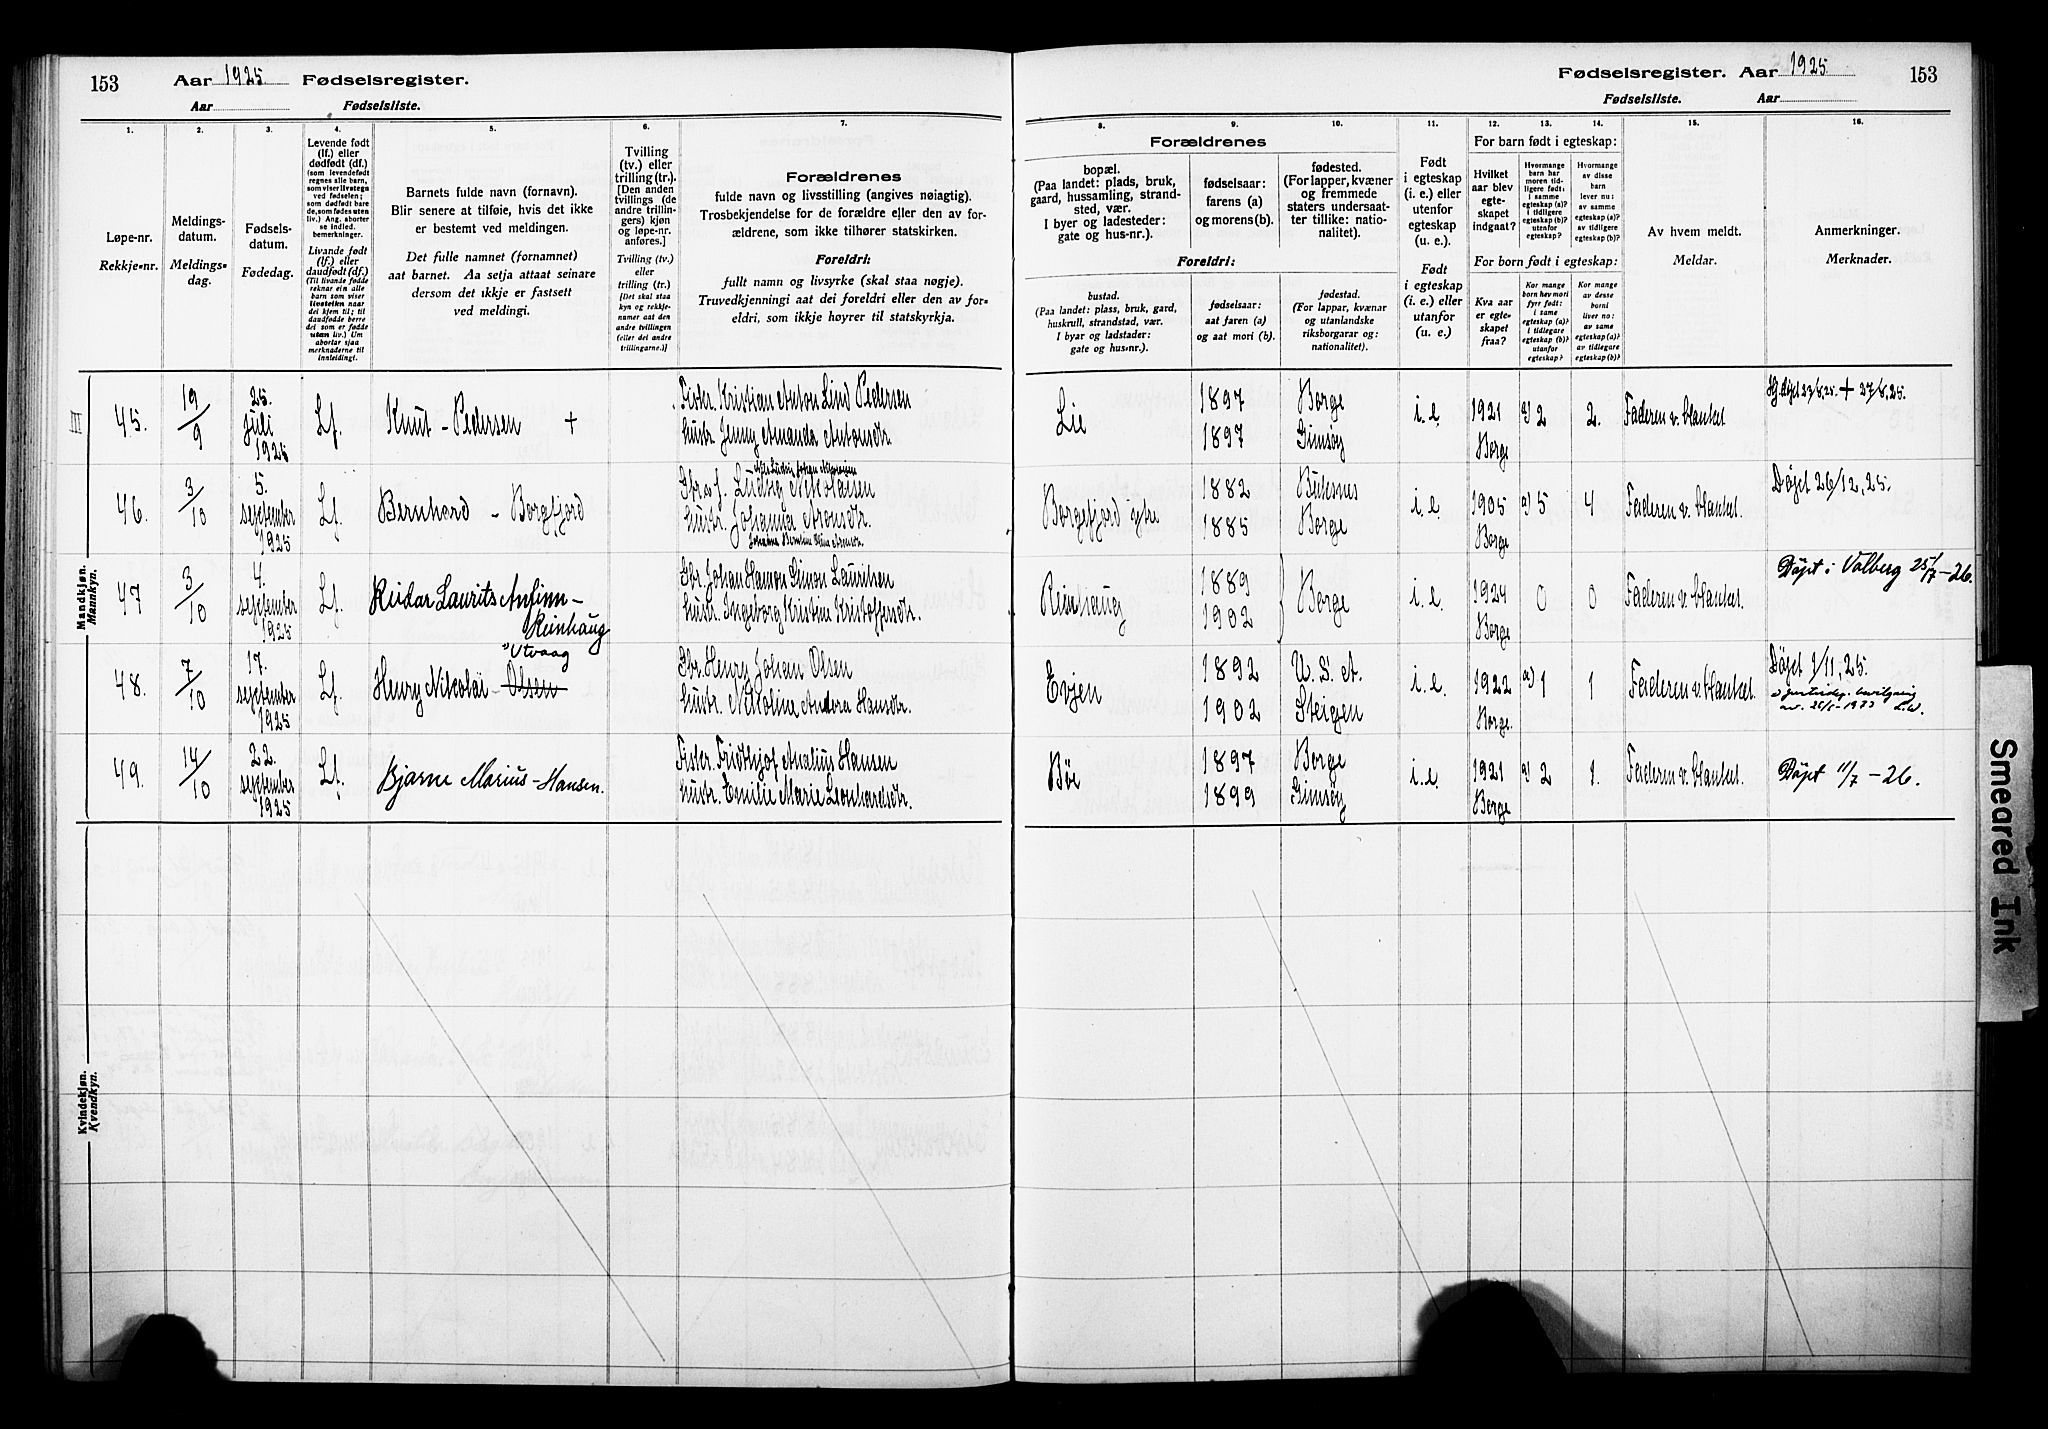 153 Aar 1925 Fødselsregister.
Aar Fødselsliste.
Fødselsregister. Aar 1925 153
Fødselsliste. Aar
1. 2. 3. 4. 5. 6. 7.
Løpe-nr.
Rekkje-nr.
Meldings-
datum.
Meldings-
dag.
Fødsels-
datum.
Fødedag.
Levende født
(lf.) eller
dødfødt (df.)
(som levendefødt
regnes alle barn,
som viser livstegn
ved fødselen;
som dødfødt bare
de, som fødes uten
liv.) Ang. aborter
se indled.
bemerkninger.
Livande født
(lf.) eller
daudfødt (df.)
(Til livande fødde
reknar ein alle
barn som viser
livsteikn naar
dei kjem til; til
daudfødde berre
dei som er fødde
utan liv.) Um
abortar sjaa
merknaderne til
innleidingi.
Barnets fulde navn (fornavn).
Blir senere at tilføie, hvis det ikke
er bestemt ved meldingen.
Det fulle namnet (fornamnet)
aat barnet. Aa setja attaat seinare
dersom det ikkje er fastsett
ved meldingi.
Tvilling
(tv.) eller
trilling (tr.).
[Den anden
tvillings (de
andre trillin-
gers) kjøn
og løpe-nr.
anføres.]
Tvilling (tv.)
eller
trilling (tr.)
[Det skal staa
kyn og rekkje-
numer aat den
andre tvillingen
(eller dei andre
trillingarne.)]
Forældrenes
fulde navn og livsstilling (angives nøiagtig).
Trosbekjendelse for de forældre eller den av for-
ældrene, som ikke tilhører statskirken.
Foreldri:
fullt namn og livsyrke (skal staa nøgje).
Truvedkjenningi aat dei foreldri eller den av for-
eldri, som ikkje høyrer til statskyrkja.
8. 9. 10. 11. 12. 13. 14. 15. 16.
Forældrenes
bopæl.
(Paa landet: plads, bruk,
gaard, hussamling, strand-
sted, vær.
I byer og ladesteder:
gate og hus-nr.).
fødselsaar:
farens (a)
og morens (b).
fødested.
(For lapper, kvæner
og fremmede
staters undersaat-
ter tillike: natio-
nalitet).
Foreldri:
bustad.
(Paa landet: plass, bruk, gard,
huskrull, strandstad, vær.
I byar og ladstader:
gate og hus-nr.).
fødselsaar:
aat faren (a)
og aat mori (b).
fødestad.
(For lappar, kvænar
og utanlandske
riksborgarar og:
nationalitet).
Født
i egteskap
(i. e.) eller
utenfor
egteskap
(u. e.).
Født
i egteskap
(i. e.) eller
utanfor
(u. e.).
For barn født i egteskap:
Hvilket
aar blev
egte-
skapet
indgaat?
Hvormange
barn har
moren tid-
ligere født:
i samme
egteskap (a)?
i tidligere
egteskap (b)?
utenfor
egteskap?
Hvormange
av disse
barn
lever nu:
av samme
egteskap (a)?
av tidligere
egteskap (b)?
For born født i egteskap:
Kva aar
er egte-
skapet
fraa?
Kor mange
born hev mori
fyrr født:
i same
egteskap (a)?
i tidlegare
egteskap (b)?
utanfor
egteskap?
Kor mange
av desse
borni
liver no:
av same
egteskap (a)?
av tidlegare
egteskap (b)?
Av hvem meldt.
Meldar.
Anmerkninger.
Merknader.
III
Mandkjøn.
Mannkyn.
45. 19/9 25. juli 1925 Lf. Knut - Pedersen +
Fisker Kristian Anton Lind Pedersen
hustr. Jenny Amanda Antonsdtr.
Lie 1897 Borge i.e. 1921 Borge a) 2 2. Faderen v. blanket
1897 Gimsøy
Hj.døpt 23/8,25. + 27/8,25.
46. 3/10 5. september 1925 Lf. Bernhard - Borgfjord
Gbr. f. Ludvig Nikolaisen
hustr. Johanna Aronsdtr.
Borgefjord ytre 1882 Buksnes i.e. 1905 Borge a) 5 4 Faderen v. blanket.
1885 Borge
Døpt 26/12, 25.
47 3/10 4. september 1925 Lf. Reidar Laurits Anfinn -
Reinhaug
Gbr. Johan Hamon Simon Lauritsen
hustr. Ingeborg Kristine Kristoffersdtr.
Reinhaug 1889 Borge i.e. 1924 Borge 0 0 Faderen v. blanket.
1902
Døpt i Valberg 25/7 - 26.
48. 7/10 17. september 1925 Lf. Henry Nikolai - Olsen
Utvaag
Gbr. Henry Johan Olsen
hustr. Nikoline Andora Hansdtr.
Evjen 1892 U. S. A. i.e. 1922 Borge a) 1 1 Faderen v. blanket.
1902 Steigen
Døpt 1/11, 25.
49. 14/10 22. september 1925 Lf. Bjarne Marius - Hansen.
Fisker Fridthjof Analius Hansen
hustr. Emilie Marie Leonhardsdtr.
Bøe 1897 Borge i.e 1921 Borge a) 2 1. Faderen v. blanket.
1899 Gimsøy
Døpt 11/7 - 26.
Kvindekjøn.
Kvendkyn.
Smeared Ink